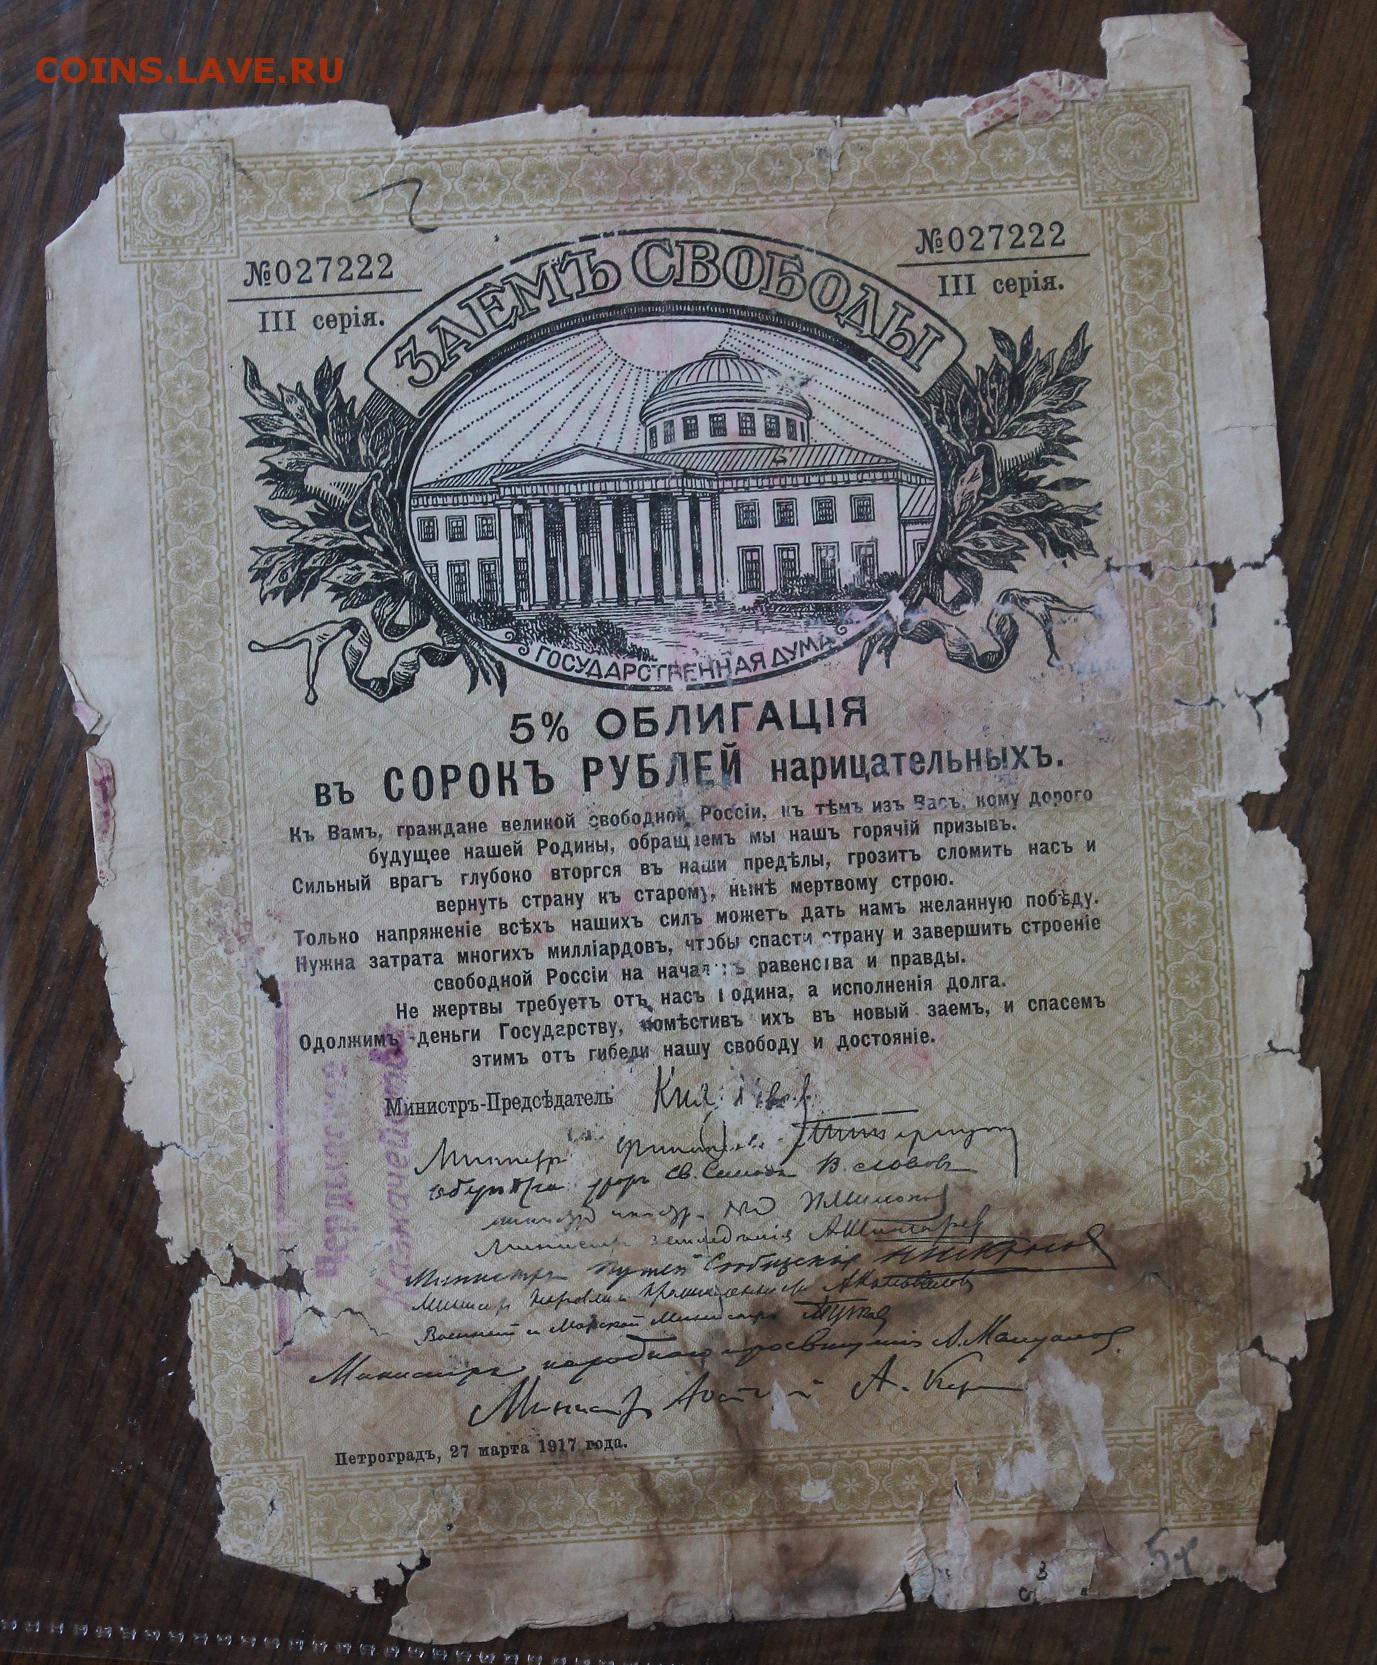 COINS.LAVE.RU
№027222
III серія.
№027222
III серія.
ЗАЕМЪ СВОБОДЫ
ГОСУДАРСТВЕННАЯ ДУМА
5% ОБЛИГАЦІЯ
въ СОРОКЪ РУБЛЕЙ нарицательныхъ.
Къ Вамъ, граждане великой свободной Россіи, къ тѣмъ изъ Васъ, кому дорого
будущее нашей Родины, обращаемъ мы нашъ горячій призывъ.
Сильный врагъ глубоко вторгся въ наши предѣлы, грозитъ сломить насъ и
вернуть страну къ старому, нынѣ мертвому строю.
Только напряженіе всѣхъ нашихъ силъ можетъ дать намъ желанную побѣду.
Нужна затрата многихъ милліардовъ, чтобы спасти страну и завершить строеніе
свободной Россіи на началахъ равенства и правды.
Не жертвы требуетъ отъ насъ Родина, а исполненія долга.
Одолжимъ деньги Государству, помѣстивъ ихъ въ новый заемъ, и спасемъ
этимъ отъ гибели нашу свободу и достояніе.
Министръ-Предсѣдатель
Министръ
Св. Синода В. Львовъ
Министръ Земледѣлія А. Шингаревъ
Министръ Путей Сообщенія Н. Некрасовъ
Министръ Торговли и Промышленности А. Коноваловъ
Военный и Морской Министръ
Министръ народнаго просвѣщенія А. Мануиловъ.
Министръ А. Кер
Петроградъ, 27 марта 1917 года.
Казначейство
3